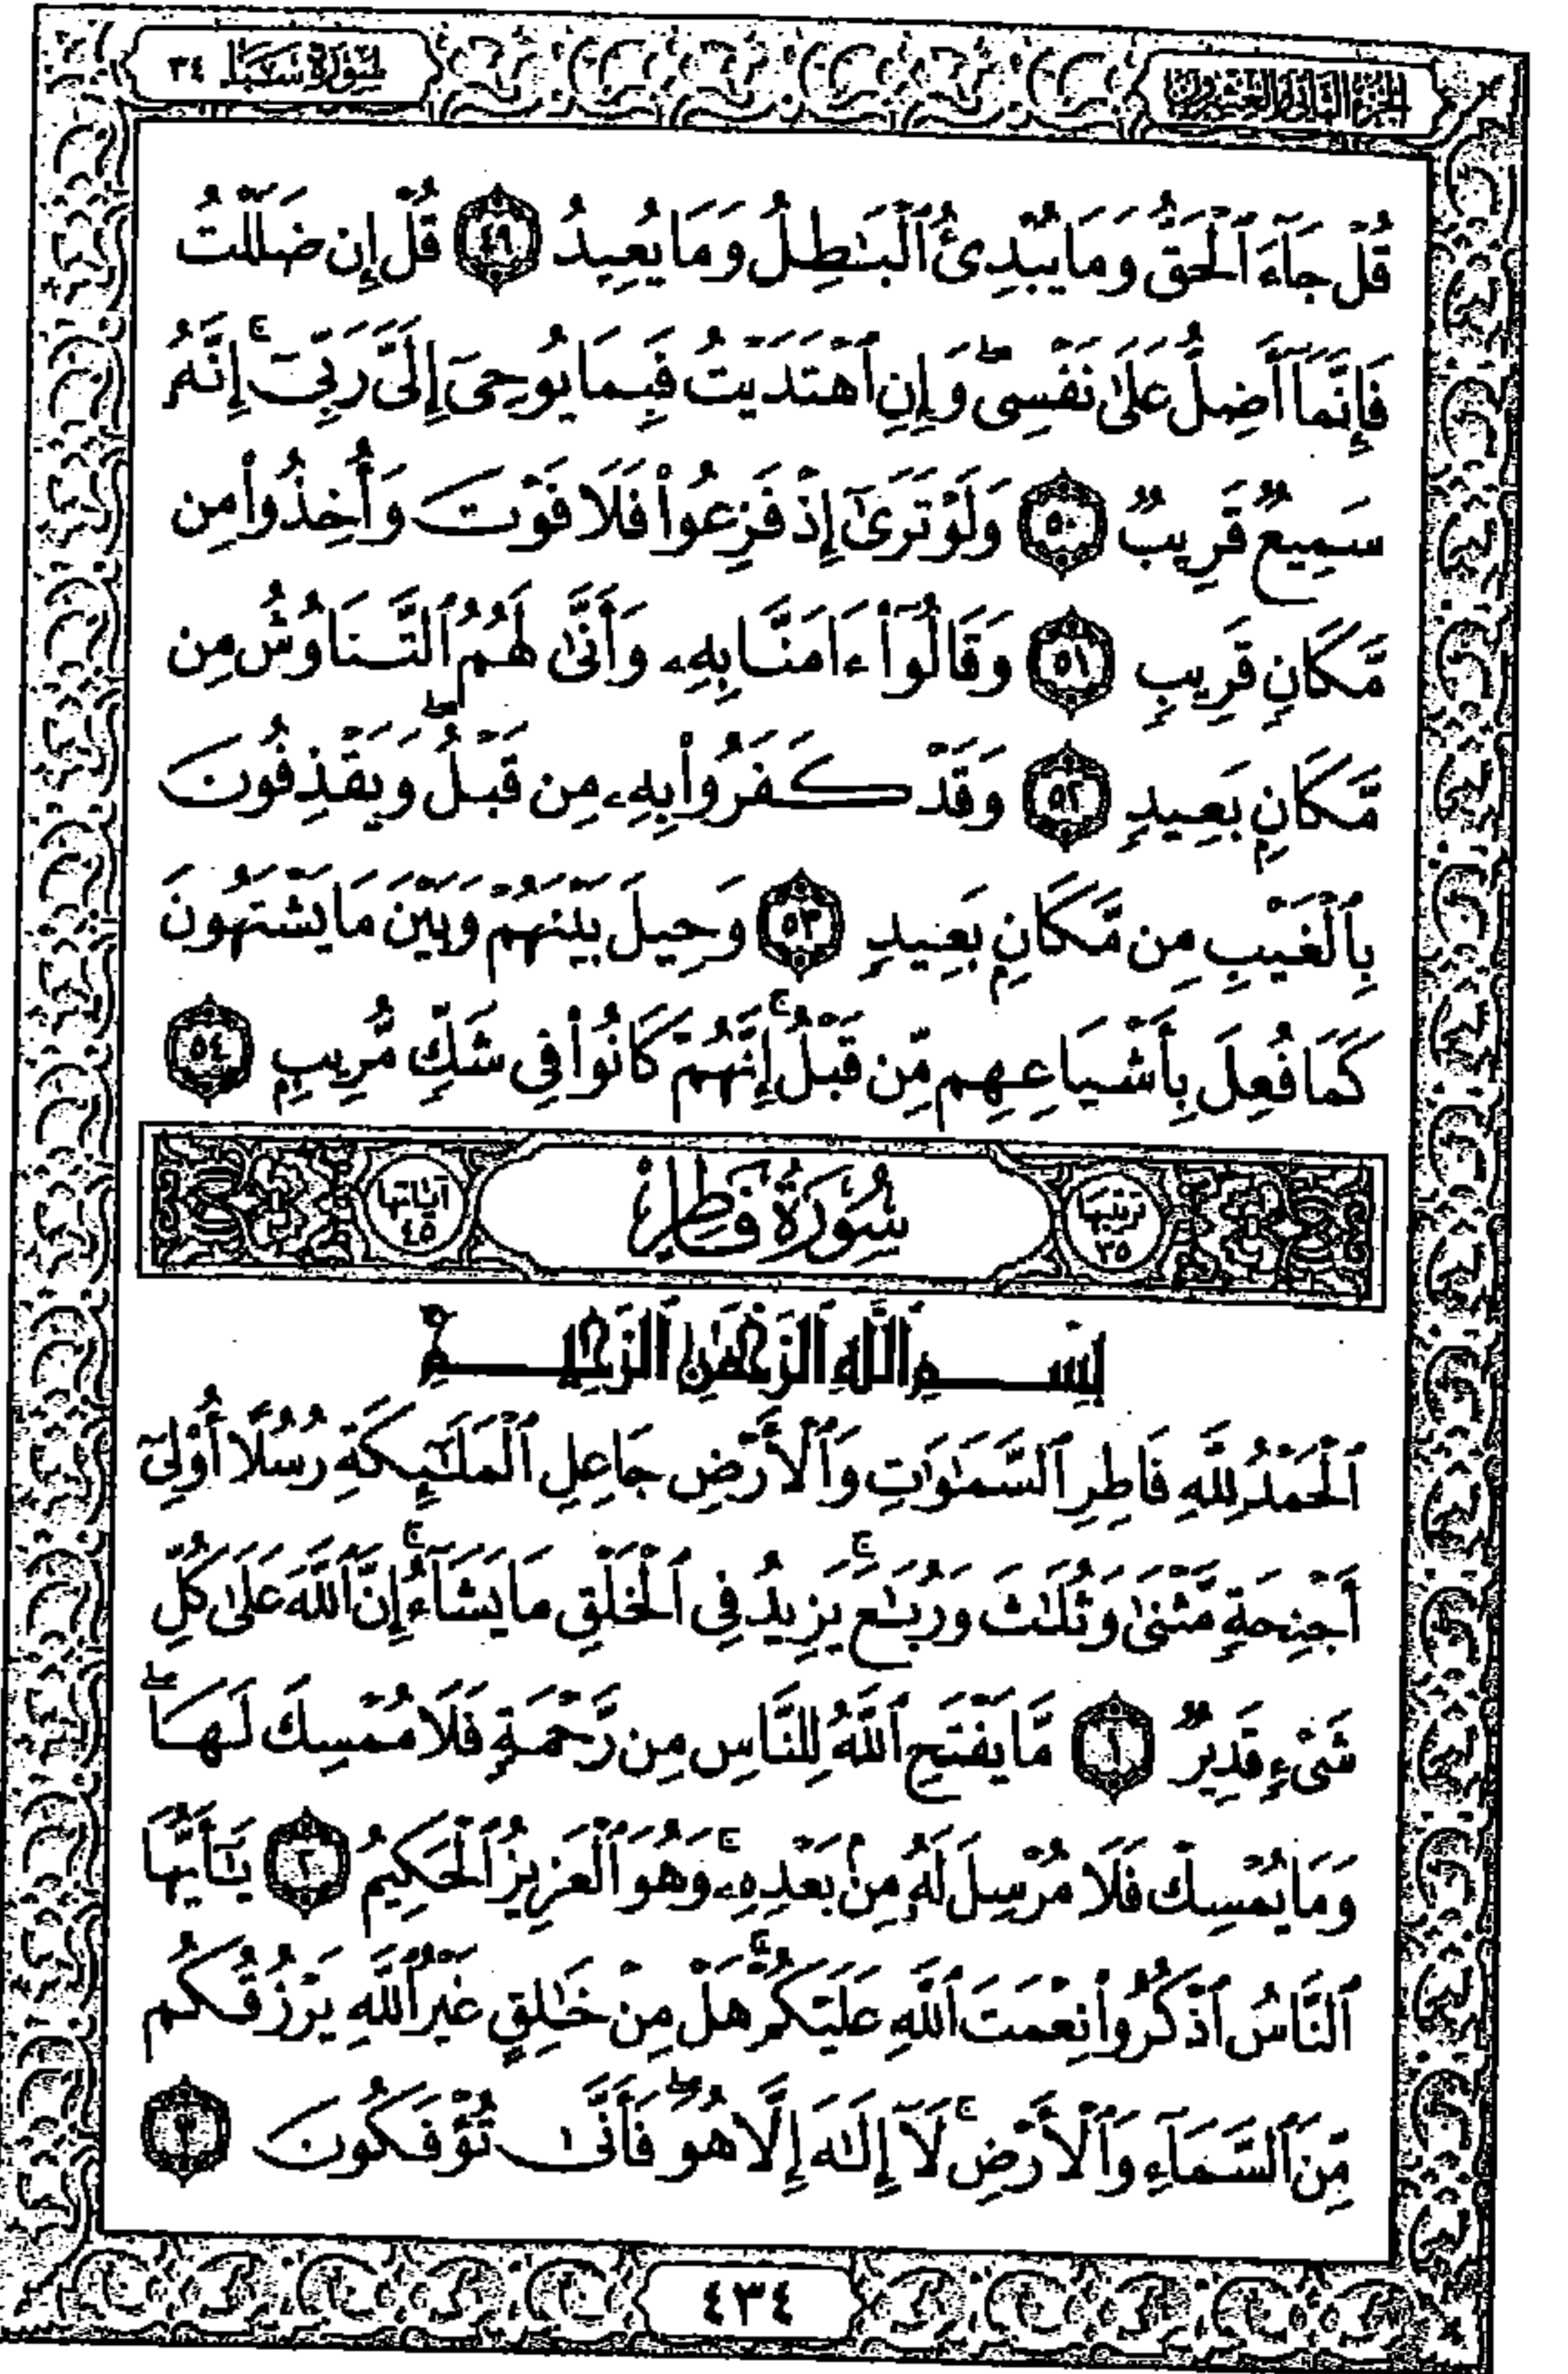 الجزء الثاني والعشرون سورة سبإ ٣٤
قُلْ جَآءَ ٱلْحَقُّ وَمَا يُبْدِئُ ٱلْبَٰطِلُ وَمَا يُعِيدُ ٤٩ قُلْ إِن ضَلَلْتُ
فَإِنَّمَآ أَضِلُّ عَلَىٰ نَفْسِى ۖ وَإِنِ ٱهْتَدَيْتُ فَبِمَا يُوحِىٓ إِلَىَّ رَبِّىٓ ۚ إِنَّهُۥ
سَمِيعٌ قَرِيبٌ ٥٠ وَلَوْ تَرَىٰٓ إِذْ فَزِعُوا۟ فَلَا فَوْتَ وَأُخِذُوا۟ مِن
مَّكَانٍ قَرِيبٍ ٥١ وَقَالُوٓا۟ ءَامَنَّا بِهِۦ وَأَنَّىٰ لَهُمُ ٱلتَّنَاوُشُ مِن
مَّكَانٍۭ بَعِيدٍ ٥٢ وَقَدْ كَفَرُوا۟ بِهِۦ مِن قَبْلُ ۖ وَيَقْذِفُونَ
بِٱلْغَيْبِ مِن مَّكَانٍۭ بَعِيدٍ ٥٣ وَحِيلَ بَيْنَهُمْ وَبَيْنَ مَا يَشْتَهُونَ
كَمَا فُعِلَ بِأَشْيَاعِهِم مِّن قَبْلُ ۚ إِنَّهُمْ كَانُوا۟ فِى شَكٍّ مُّرِيبٍۭ ٥٤
ترتيبها ٣٥ سُورَةُ فَاطِرٍ آياتها ٤٥
بِسْمِ ٱللَّهِ ٱلرَّحْمَٰنِ ٱلرَّحِيمِ
ٱلْحَمْدُ لِلَّهِ فَاطِرِ ٱلسَّمَٰوَٰتِ وَٱلْأَرْضِ جَاعِلِ ٱلْمَلَٰٓئِكَةِ رُسُلًا أُو۟لِىٓ
أَجْنِحَةٍ مَّثْنَىٰ وَثُلَٰثَ وَرُبَٰعَ ۚ يَزِيدُ فِى ٱلْخَلْقِ مَا يَشَآءُ ۚ إِنَّ ٱللَّهَ عَلَىٰ كُلِّ
شَىْءٍ قَدِيرٌ ١ مَّا يَفْتَحِ ٱللَّهُ لِلنَّاسِ مِن رَّحْمَةٍ فَلَا مُمْسِكَ لَهَا ۖ
وَمَا يُمْسِكْ فَلَا مُرْسِلَ لَهُۥ مِنۢ بَعْدِهِۦ ۚ وَهُوَ ٱلْعَزِيزُ ٱلْحَكِيمُ ٢ يَٰٓأَيُّهَا
ٱلنَّاسُ ٱذْكُرُوا۟ نِعْمَتَ ٱللَّهِ عَلَيْكُمْ ۚ هَلْ مِنْ خَٰلِقٍ غَيْرُ ٱللَّهِ يَرْزُقُكُم
مِّنَ ٱلسَّمَآءِ وَٱلْأَرْضِ ۚ لَآ إِلَٰهَ إِلَّا هُوَ ۖ فَأَنَّىٰ تُؤْفَكُونَ ٣
٤٣٤